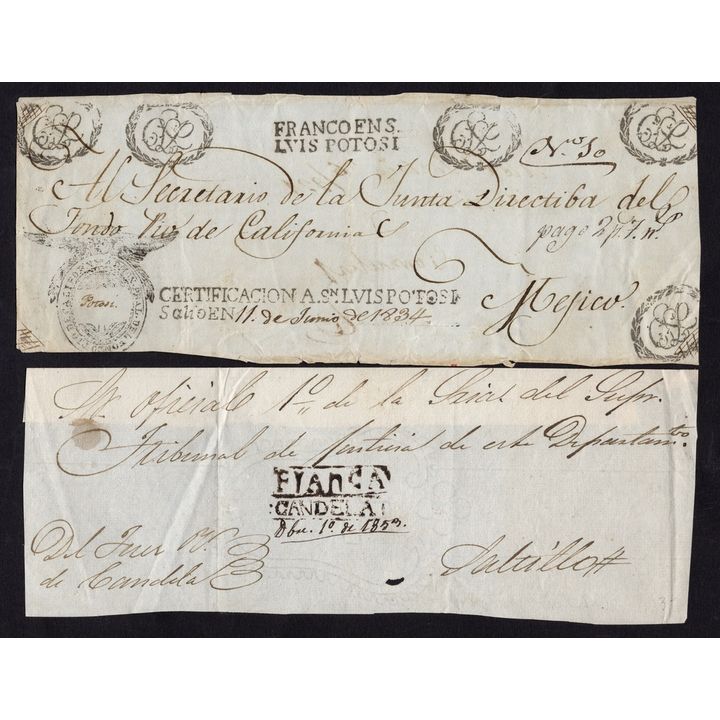 FRANCO EN S.
LVIS POTOSI
Nro. 10
Al Secretario de la Junta Directiba del
Fondo Pio de California
pago 2 p. 7 r.
Potosi.
CERTIFICACION A. SN LVIS POTOSI
Salio EN 11. de Junio de 1834.
Mejico.
Al oficial 1o. de la Sria. del Supr.
Tribunal de Justicia de este Departamto.
FrAnCA
CANDELA
Dbre. 1o. de 1853.
Del Juez
de Candela
Saltillo